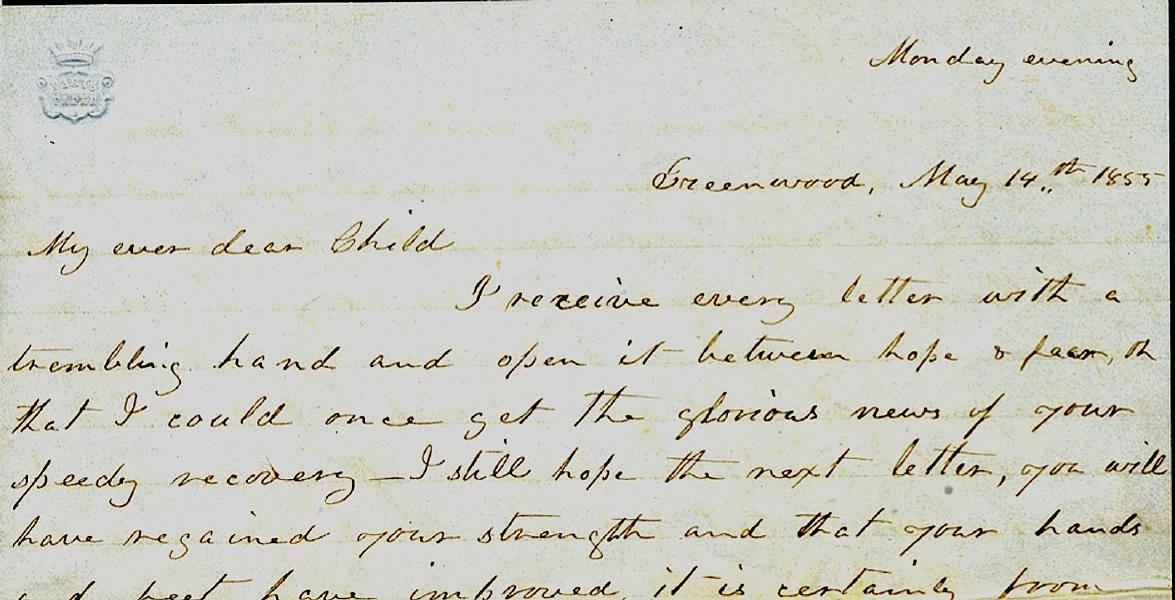 Monday evening
Greenwood, May 14th 1855
My ever dear Child
I receive every letter with a
trembling hand and open it between hope & fear, oh
that I could once get the glorious news of your
speedy recovery – I still hope the next letter, you will
have regained your strength and that your hands
and feet have improved, it is certainly from